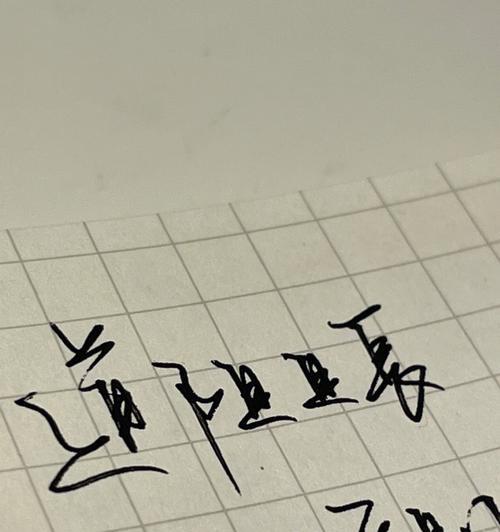 道阻且長